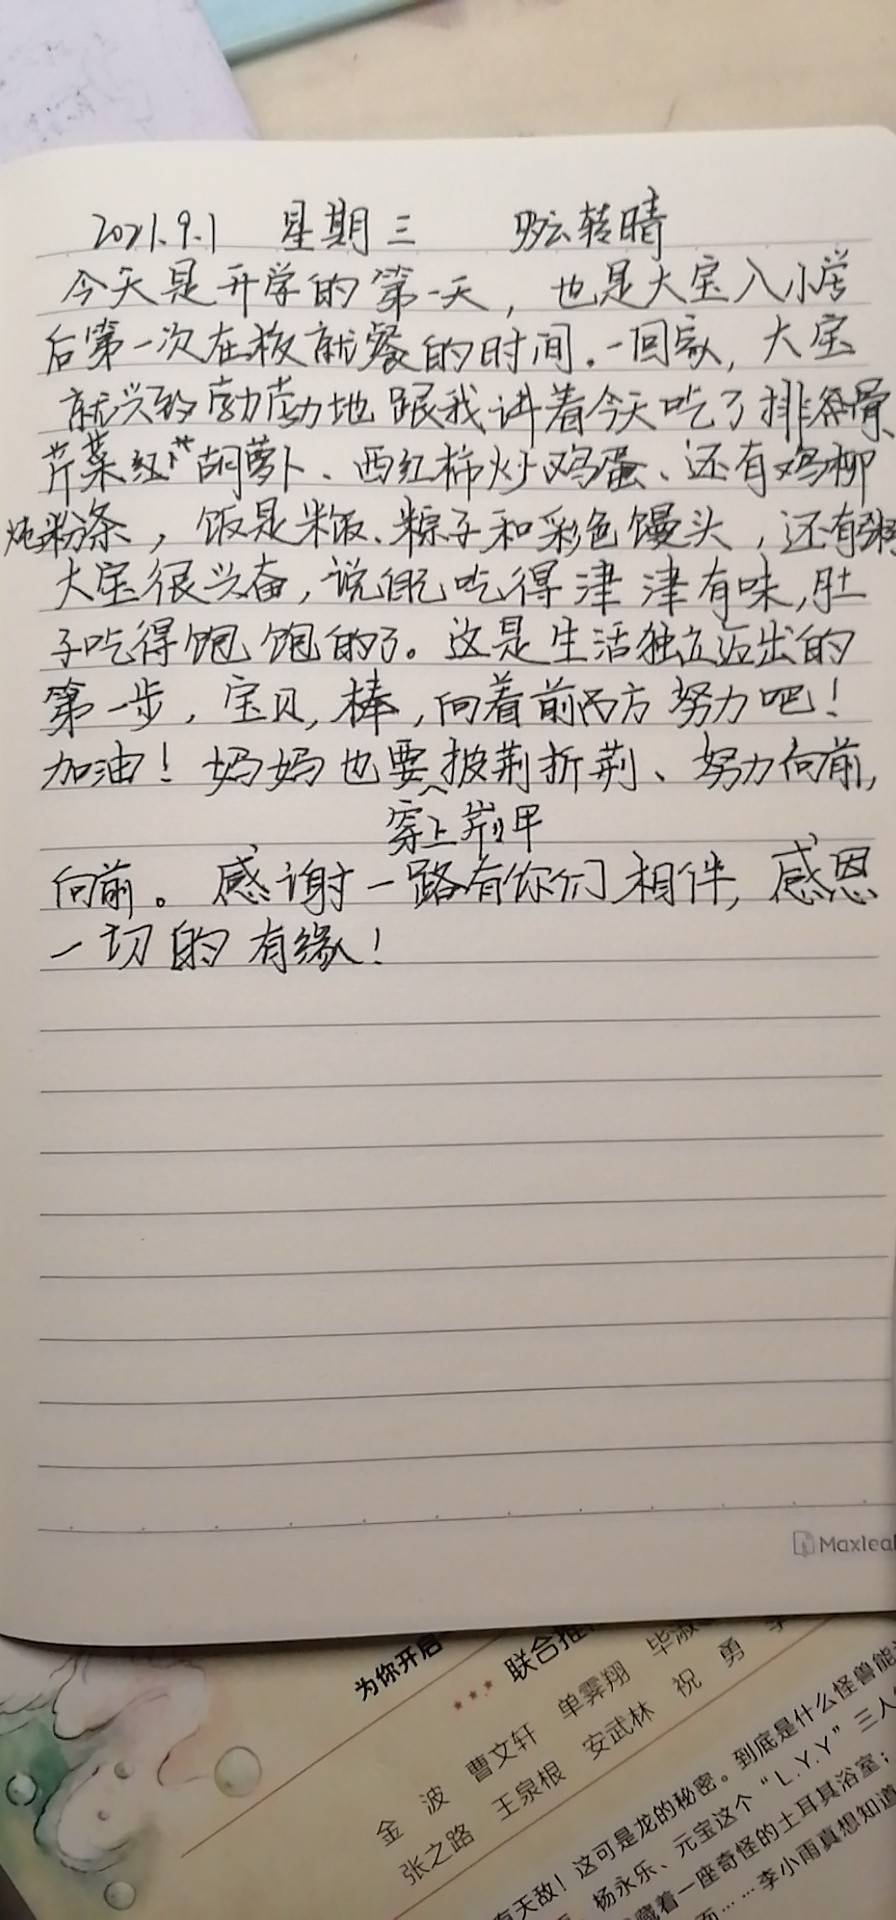 2021.9.1 星期三 多云转晴
今天是开学的第一天，也是大宝入小学
后第一次在校就餐的时间.一回家，大宝
就兴致勃勃地跟我讲着今天吃了排骨
芹菜红 胡萝卜、西红柿炒鸡蛋、还有鸡柳
炖粉条，饭是米饭、粽子和彩色馒头，还有粥
大宝很兴奋，说自己吃得津津有味，肚
子吃得饱饱的了。这是生活独立迈出的
第一步，宝贝，棒，向着前方努力吧！
加油！妈妈也要披荆折荆、努力向前，
穿上 甲
向前。感谢一路有你们相伴，感恩
一切的有缘！
Maxleaf
为你开启
联合推
金波 曹文轩 单霁翔 毕淑
张之路 王泉根 安武林 祝勇 李
有天敌！这可是龙的秘密。到底是什么怪兽能
杨永乐、元宝这个“L.Y.Y”三人
藏着一座奇怪的土耳其浴室；
……李小雨真想知道